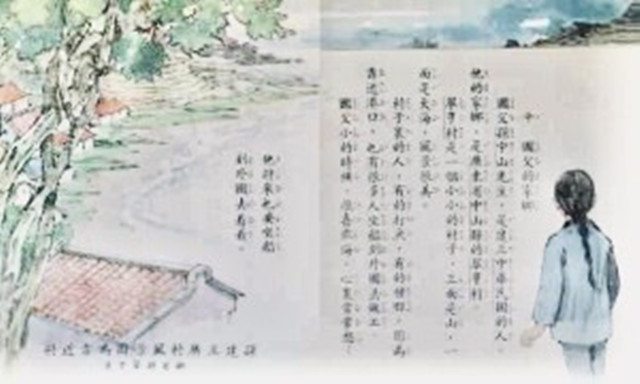 國父的家鄉
國父孫中山先生，是建立中華民國的人。
他的家鄉，是廣東省中山縣的翠亨村。
翠亨村是一個小小的村子，三面是山，一
面是大海，風景很美。
村子裏的人，有的打，有的種田，因為
靠近港口，也有很多人坐船到外國去做工。
國父小的時候，很喜歡海，心裏常常想：
他將來也要坐船
到外國去看看。